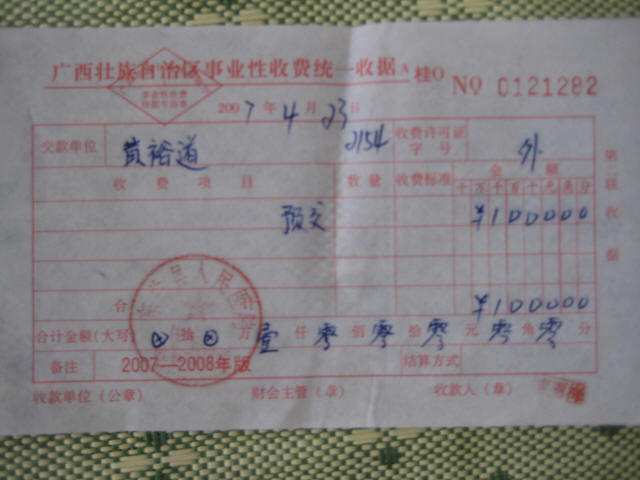 广西壮族自治区事业性收费统一收据A 桂O
NO 0121282
2007年4月23日
交款单位 黄裕道 2154 收费许可证字号 外
收费项目 数量 收费标准 金额
十万千百十元角分
预交 ¥100000
合 ¥100000
合计金额(大写) 拾 万壹仟零佰零拾零元零角零分
备注 2007—2008年版 结算方式
收款单位(公章) 财会主管(章) 收款人(章)
第二联收据